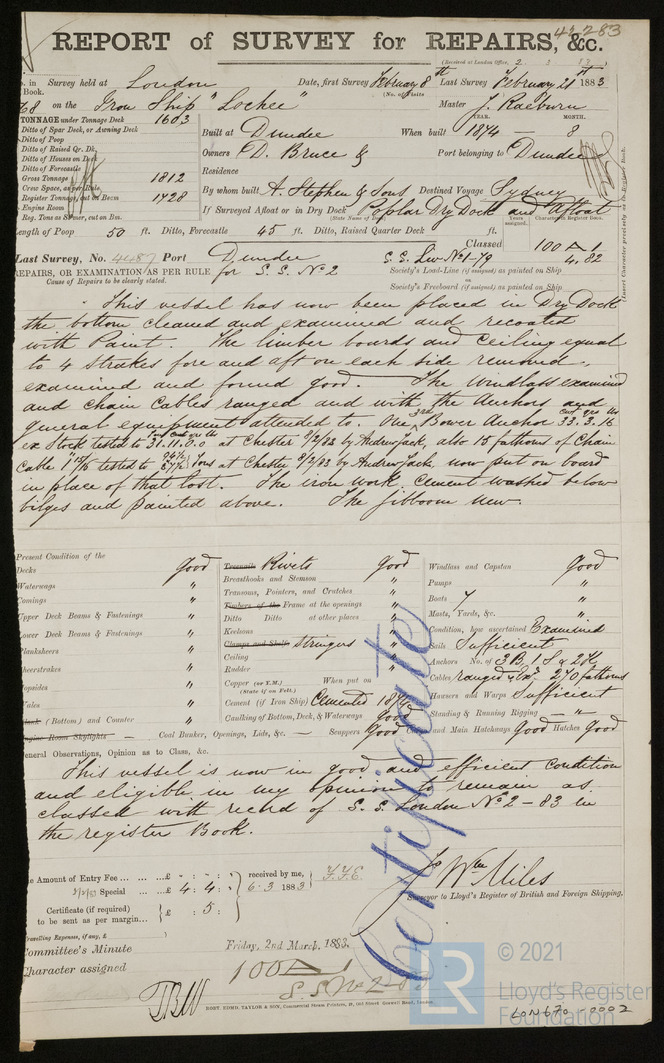 42283
REPORT of SURVEY for REPAIRS, &c.
(Received at London Office, 2 3 83)
in Survey held at London Date, first Survey February 8th Last Survey February 21st 1883
Book. (No. of Visits
68 on the Iron Ship "Lochee" Master J. Raeburn
TONNAGE under Tonnage Deck 1603
Ditto of Spar Deck, or Awning Deck
Ditto of Poop
Ditto of Raised Qr. Dk.
Ditto of Houses on Deck
Ditto of Forecastle
Gross Tonnage 1812
Crew Space, as per Rule
Register Tonnage, cut on Beam 1728
Engine Room
Reg. Tons as Steamer, cut on Bm.
YEAR. MONTH.
Built at Dundee When built 1874 — 8
Owners D. Bruce & Port belonging to Dundee
Residence
By whom built A. Stephen & Sons Destined Voyage Sydney
If Surveyed Afloat or in Dry Dock Poplar Dry Dock and Afloat
(State Name of Dock.)
Length of Poop 50 ft. Ditto, Forecastle 45 ft. Ditto, Raised Quarter Deck ft.
Years assigned. Character in Register Book.
(Insert Character precisely as in Register Book.
Last Survey, No. 4487 Port Dundee S.S. Lw No 1-79 Classed 100 A 1
4,82
REPAIRS, OR EXAMINATION AS PER RULE for S.S. No 2
Cause of Repairs to be clearly stated.
Society's Load-Line (if assigned) as painted on Ship
or
Society's Freeboard (if assigned) as painted on Ship
This vessel has now been placed in Dry Dock
the bottom cleaned and examined and recoated
with Paint. The limber boards and ceiling equal
to 4 strakes fore and aft on each side removed
examined and found good. The windlass examined
and chain Cables ranged and with the Anchors and
general equipment attended to. One 3rd Bower Anchor 33.3.16
ex Stock tested to 31.11.0.0 at Chester 9/2/83 by Andrew Jack, also 15 fathoms of Chain
Cable tested to Tons at Chester 8/2/83 by Andrew Jack, now put on board
in place of that lost. The iron work, cement washed below
bilges and painted above. The jibboom new.
Present Condition of the
Decks good
Waterways "
Comings "
Upper Deck Beams & Fastenings "
Lower Deck Beams & Fastenings "
Planksheers "
Sheerstrakes "
Topsides "
Wales "
Plank (Bottom) and Counter "
Engine Room Skylights — Coal Bunker, Openings, Lids, &c. — Scuppers Good
Treenails Rivets good
Breasthooks and Stemson "
Transoms, Pointers, and Crutches "
Timbers of the Frame at the openings "
Ditto Ditto at other places "
Keelsons "
Clamps and Shelfs Stringers "
Ceiling "
Rudder "
Copper (or Y.M.) When put on
(State if on Felt.)
Cement (if Iron Ship) Cemented 1874
Caulking of Bottom, Deck, & Waterways good
Windlass and Capstan Good
Pumps "
Boats 4 "
Masts, Yards, &c. "
Condition, how ascertained Examined
Sails Sufficient
Anchors No. of 3 B, 1 S & 2 K
Cables ranged & Exd 270 fathoms
Hawsers and Warps Sufficient
Standing & Running Rigging — " —
and Main Hatchways Good Hatches Good
General Observations, Opinion as to Class, &c.
This vessel is now in good and efficient condition
and eligible in my opinion to remain as
classed with record of S.S. London No 2 - 83 in
the register Book.
Certificate
Amount of Entry Fee ... £ " : " : received by me,
Special ... £ 4 : 4 : 6.3 1883
Certificate (if required) £ : 5 :
to be sent as per margin...
(Travelling Expenses, if any, £
Wm Miles
Surveyor to Lloyd's Register of British and Foreign Shipping.
Committee's Minute Friday, 2nd March, 1883.
Character assigned 100 A 1
S.S. No 2-83
TBW
ROBT. EDMD. TAYLOR & SON, Commercial Steam Printers, 19, Old Street, Goswell Road, London.
LR
© 2021
Lloyd's Register
Foundation
LON670-0002